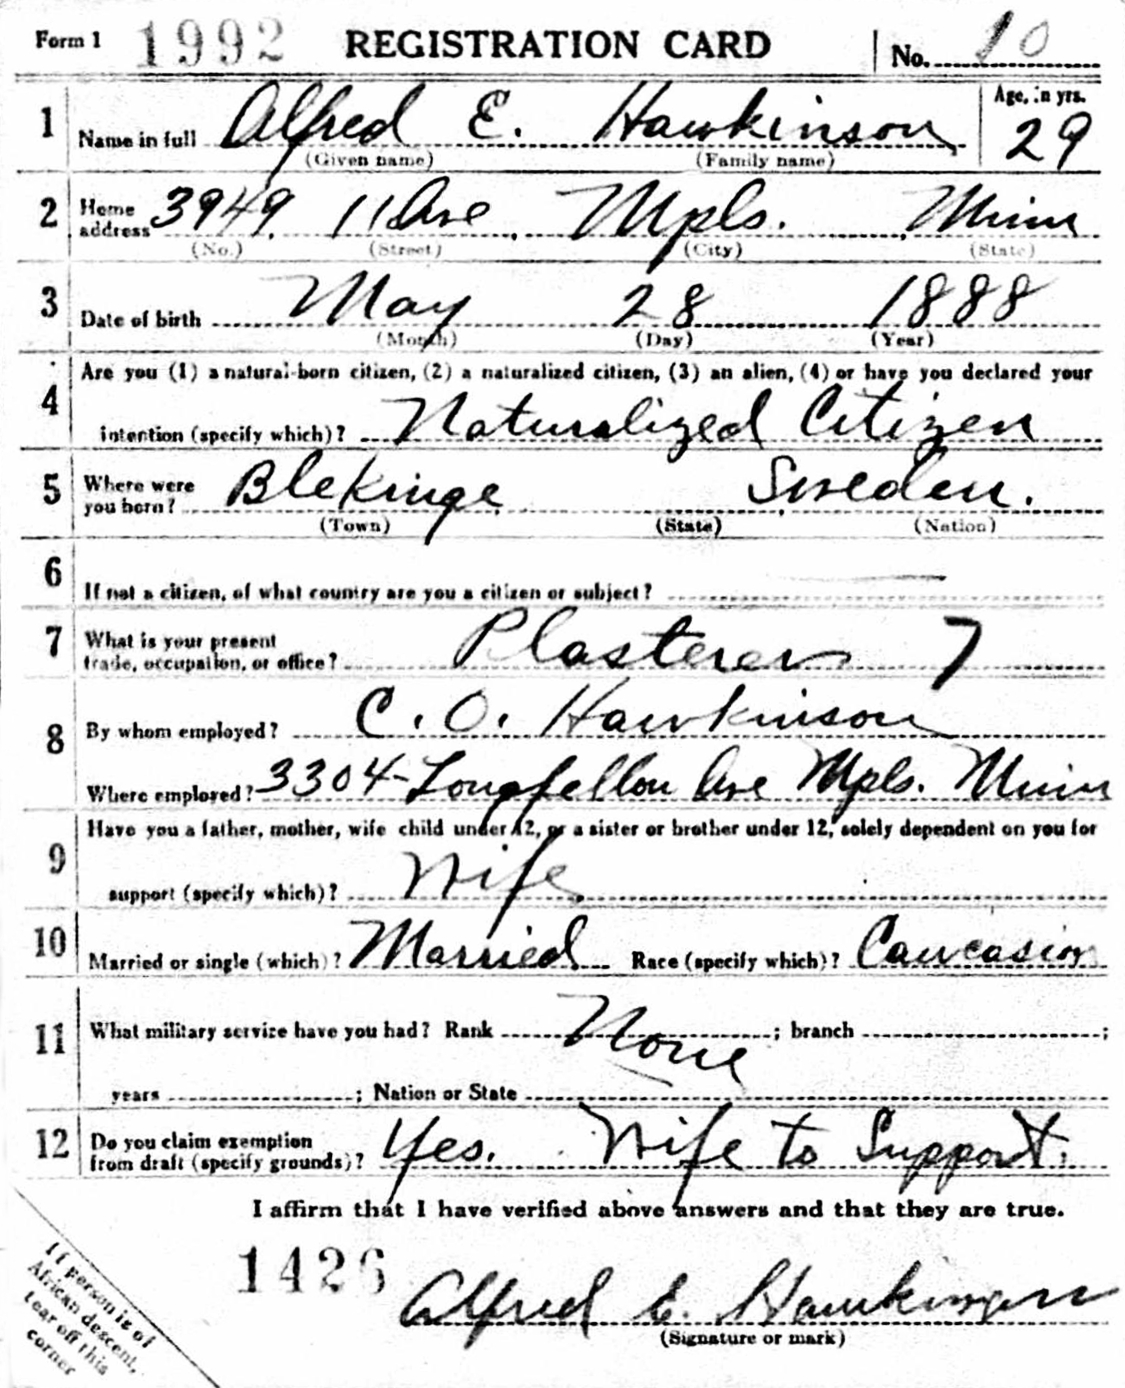 Form 1 1992 REGISTRATION CARD No. 10
1 Name in full Alfred E. Hawkinson Age, in yrs. 29
(Given name) (Family name)
2 Home address 3949 11 Ave Mpls. Minn
(No.) (Street) (City) (State)
3 Date of birth May 28 1888
(Month) (Day) (Year)
4 Are you (1) a natural-born citizen, (2) a naturalized citizen, (3) an alien, (4) or have you declared your
intention (specify which)? Naturalized Citizen
5 Where were you born? Blekinge Sweden.
(Town) (State) (Nation)
6 If not a citizen, of what country are you a citizen or subject?
7 What is your present trade, occupation, or office? Plasterer 7
8 By whom employed? C. O. Hawkinson
Where employed? 3304 - Longfellow Ave Mpls. Minn
9 Have you a father, mother, wife child under 12, or a sister or brother under 12, solely dependent on you for
support (specify which)? Wife
10 Married or single (which)? Married Race (specify which)? Caucasion
11 What military service have you had? Rank None ; branch ;
years ; Nation or State
12 Do you claim exemption from draft (specify grounds)? Yes. Wife to Support.
I affirm that I have verified above answers and that they are true.
1426 Alfred E. Hawkinson
(Signature or mark)
If person is of
African descent,
tear off this
corner